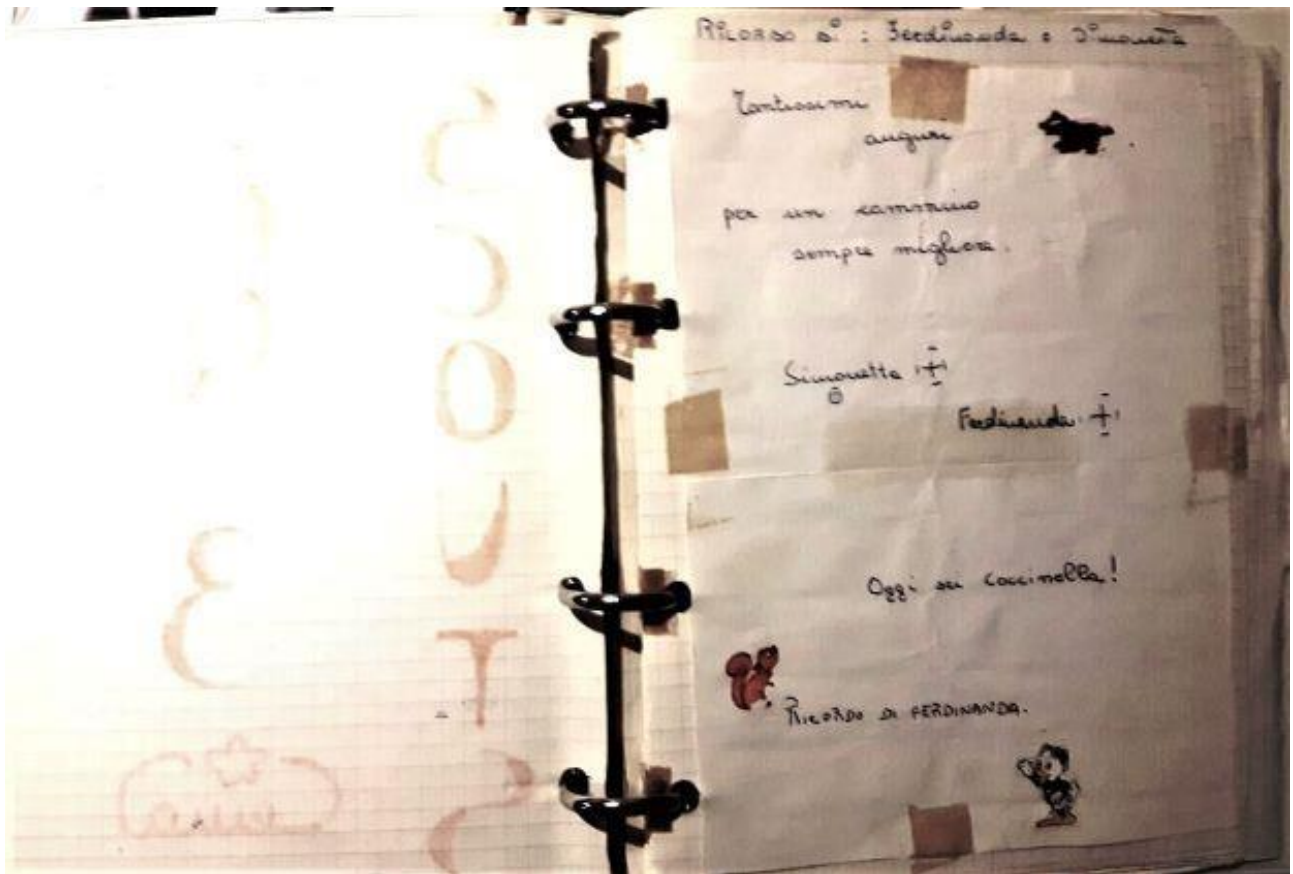 RICORDO di : Ferdinanda e Simonetta
Tantissimi
auguri
per un cammino
sempre migliore.
Simonetta
Ferdinanda
Oggi sei coccinella!
RICORDO DI FERDINANDA.